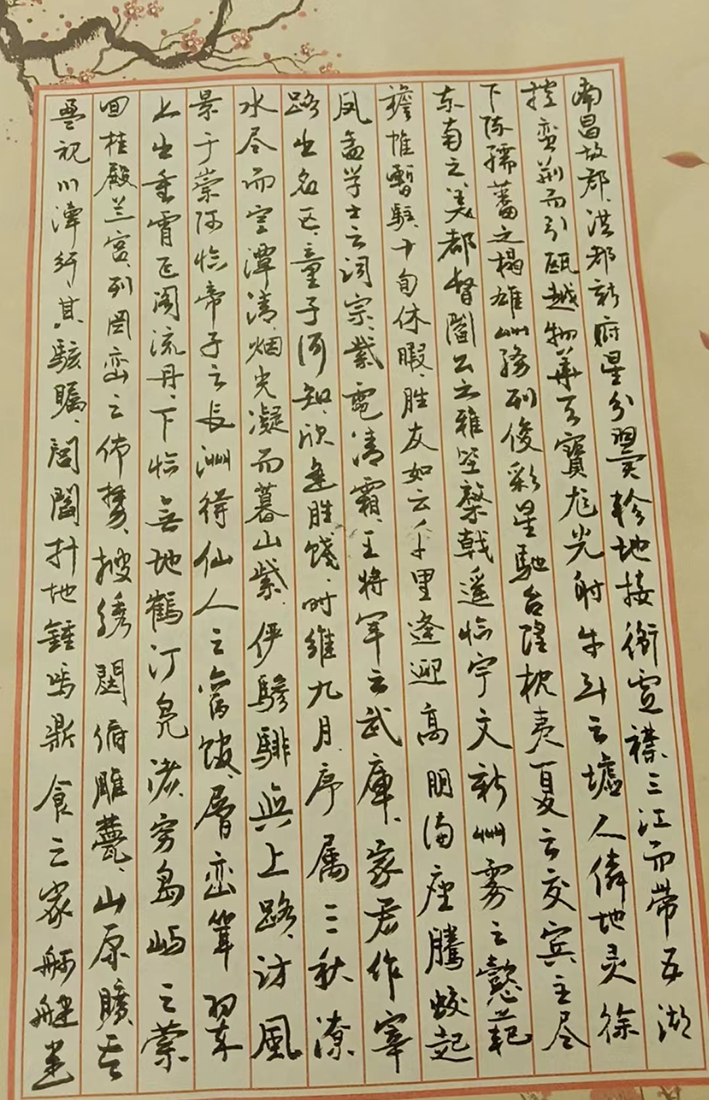 南昌故郡、洪都新府星分翼轸地接衡庐襟三江而带五湖
控蛮荆而引瓯越物华天寶龙光射牛斗之墟人傑地灵徐
下陈孺蕃之榻雄州雾列俊彩星馳台隍枕夷夏之交宾主尽
东南之美都督閻公之雅望棨戟遥临宇文新州雾之懿范
襜帷暫駐十旬休暇、胜友如云千里逢迎高朋满座腾蛟起
凤孟学士之词宗、紫電清霜、王将军之武庫、家君作宰
路出名区、童子何知、欣逢胜饯、时维九月、序属三秋潦
水尽而寒潭清、烟光凝而暮山紫、俨驂騑與上路、访風
景于崇阿临帝子之长洲得仙人之舊馆、層峦耸翠
上出重霄飞阁流丹、下临無地鶴汀凫渚、穷岛屿之萦
回桂殿兰宫、列岡峦之体势、披绣闥俯雕甍、山原曠其
盈视川泽纡其骇瞩、閭閻扑地鍾鸣鼎食之家舸舰迷